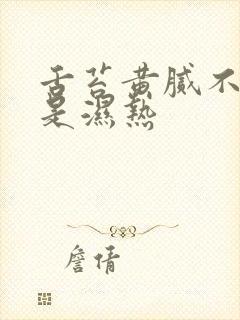 舌苔黄腻不
是濕熱
詹倩